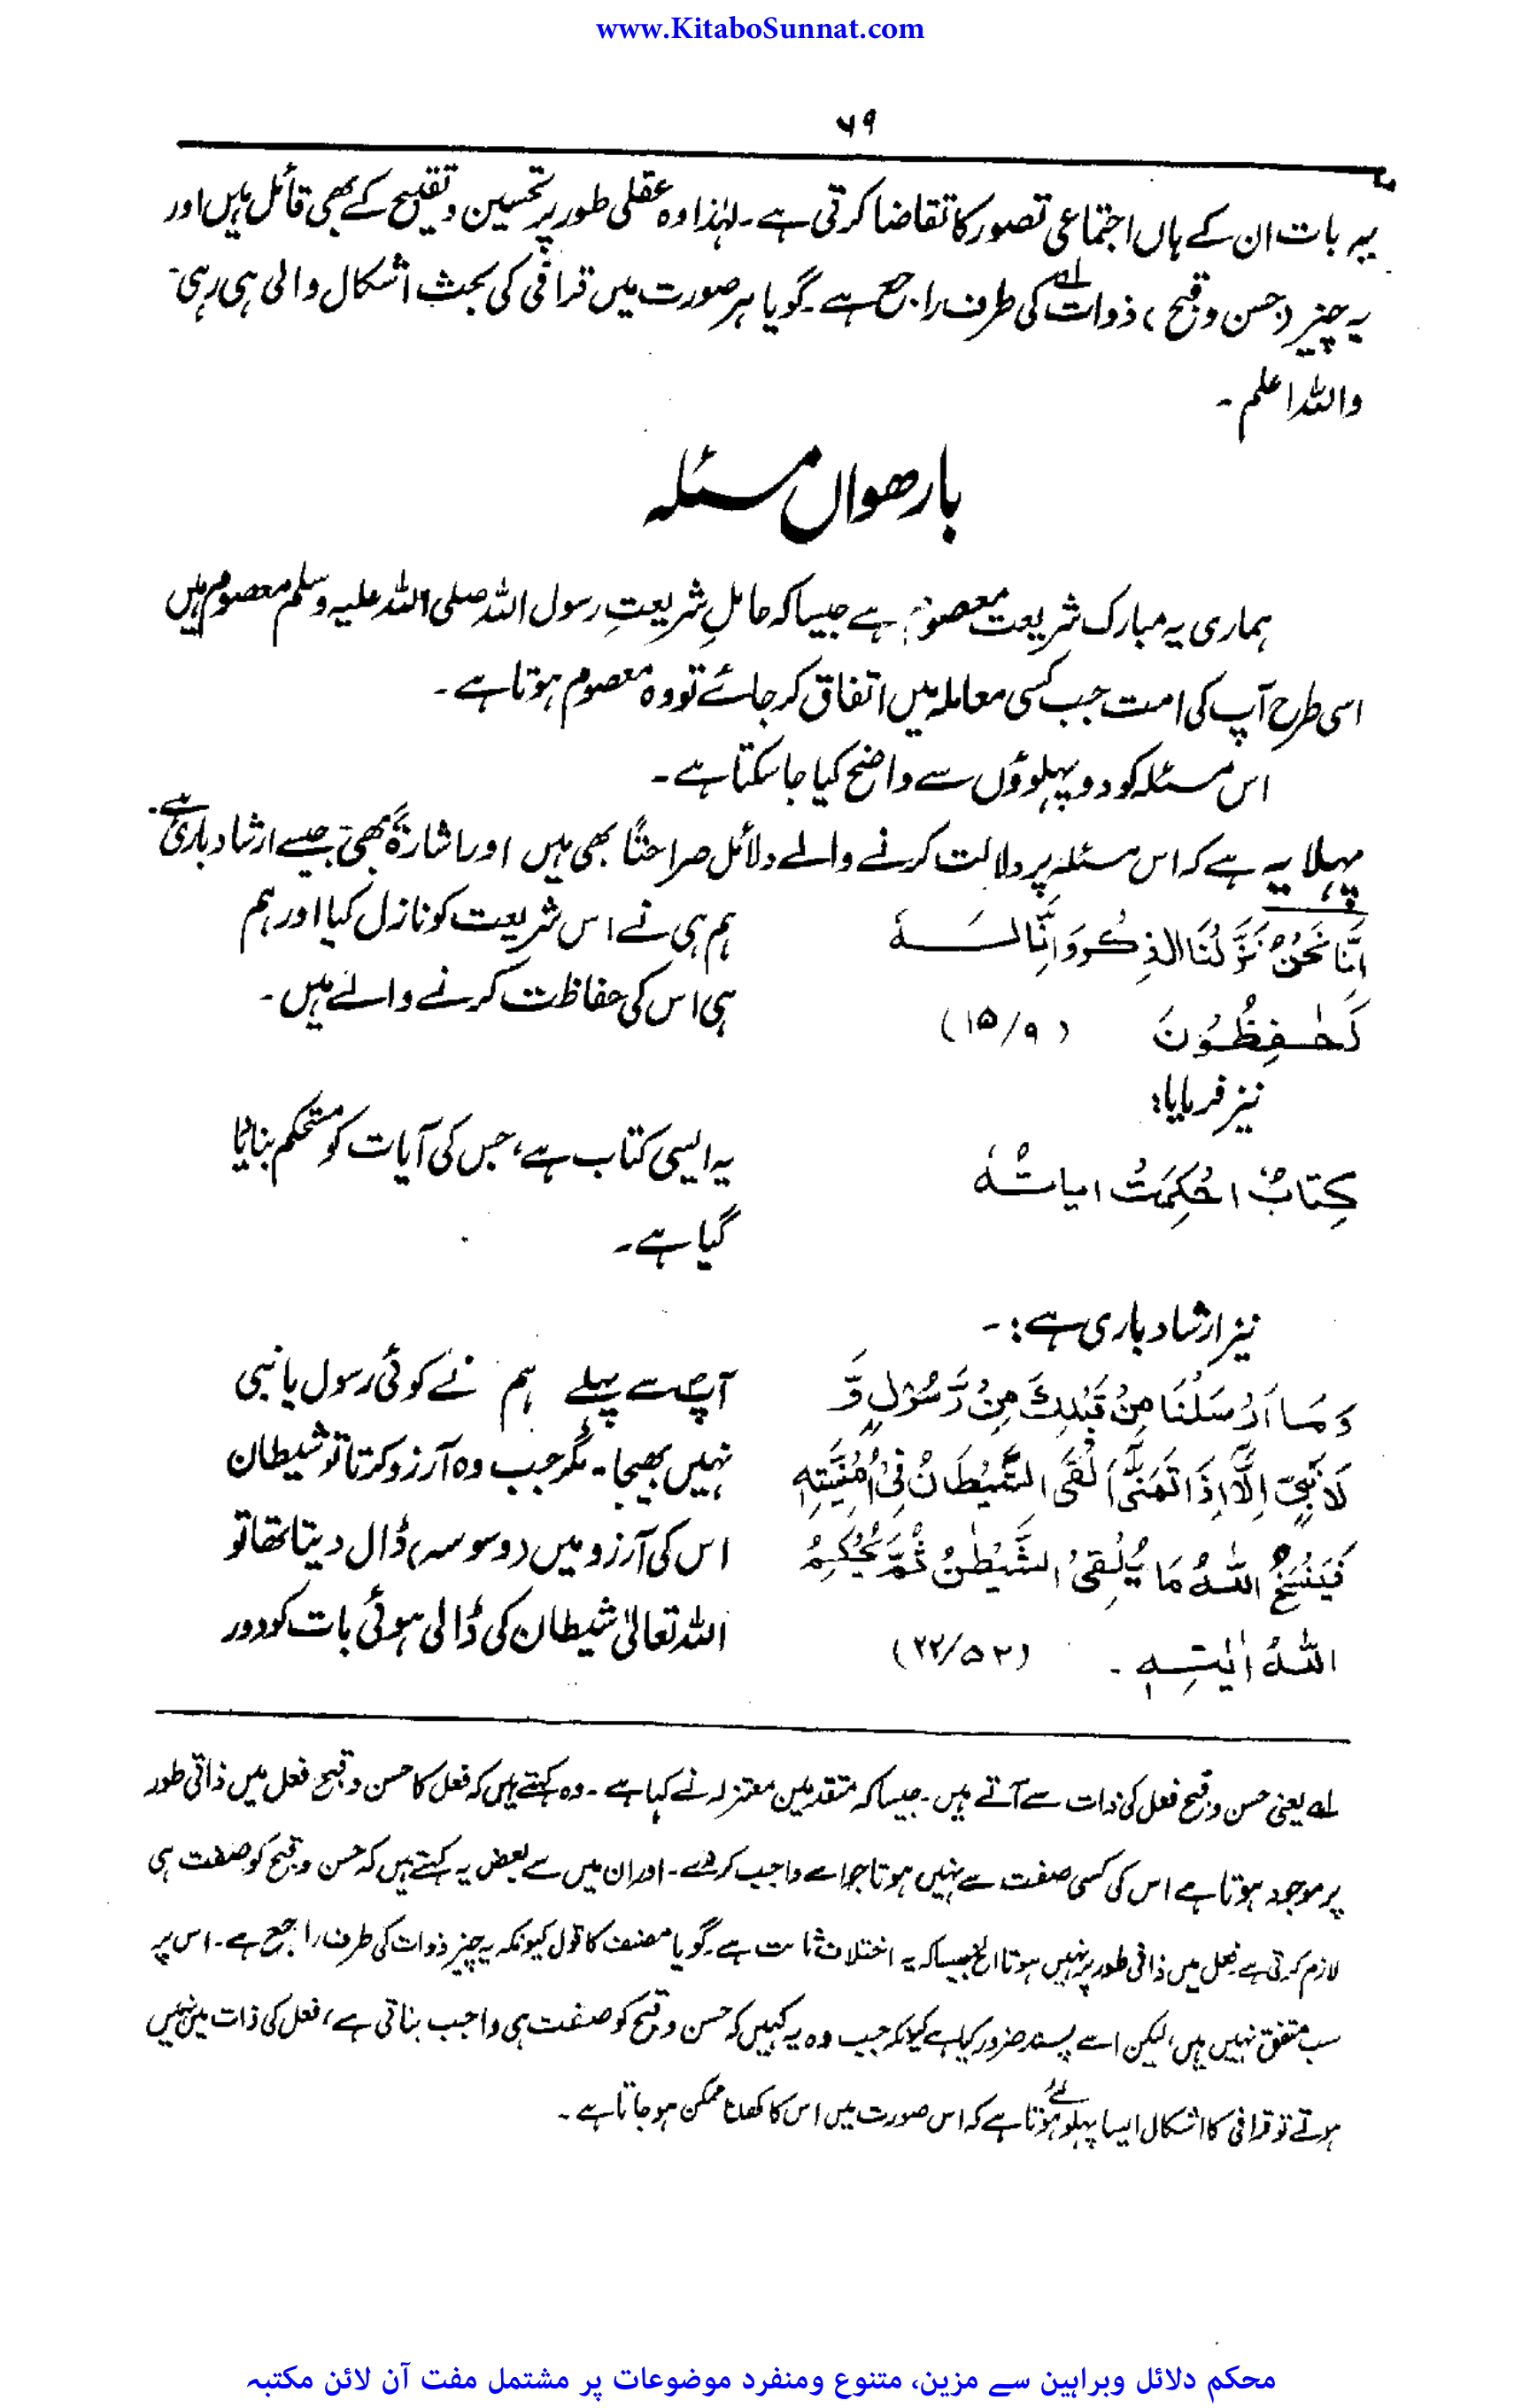 www.KitaboSunnat.com
۶۹
یہ بات ان کے ہاں اجتماعی تصور کا تقاضا کرتی ہے۔ لہٰذا وہ عقلی طور پر تحسین و تقبیح کے بھی قائل ہیں اور
یہ چیز (حسن و قبح) ذوات لہ کی طرف راجع ہے۔ گویا ہر صورت میں قرافی کی بحث اشکال والی ہی رہی۔
واللہ اعلم۔
بارھواں مسئلہ
ہماری یہ مبارک شریعت معصوم ہے جیسا کہ حاملِ شریعتِ رسول اللہ صلی اللہ علیہ وسلم معصوم ہیں
اسی طرح آپ کی امت جب کسی معاملہ میں اتفاق کر جائے تو وہ معصوم ہوتا ہے۔
اس مسئلہ کو دو پہلوؤں سے واضح کیا جا سکتا ہے۔
پہلا یہ ہے کہ اس مسئلہ پر دلالت کرنے والے دلائل صراحتًا بھی ہیں اور اشارۃً بھی، جیسے ارشاد باری ہے۔
اِنَّا نَحْنُ نَزَّلْنَا الذِكْرَ وَاِنَّا لَـــهٗ
لَحٰفِظُوْنَ (۱۵/۹)
ہم ہی نے اس شریعت کو نازل کیا اور ہم
ہی اس کی حفاظت کرنے والے ہیں۔
نیز فرمایا:
كِتَابٌ اُحْكِمَتْ اٰيَاتُهٗ
یہ ایسی کتاب ہے، جس کی آیات کو مستحکم بنایا
گیا ہے۔
نیز ارشاد باری ہے:۔
وَمَا اَرْسَلْنَا مِنْ قَبْلِكَ مِنْ رَّسُوْلٍ وَّ
لَا نَبِيٍّ اِلَّا اِذَا تَمَنّٰى اَلْقَى الشَّيْطَانُ فِىْ اُمْنِيَّتِهٖ
فَيَنْسَخُ اللّٰهُ مَا يُلْقِى الشَّيْطٰنُ ثُمَّ يُحْكِمُ
اللّٰهُ اٰيٰتِهٖ ۔ (۲۲/۵۲)
آپ سے پہلے ہم نے کوئی رسول یا نبی
نہیں بھیجا۔ مگر جب وہ آرزو کرتا تو شیطان
اس کی آرزو میں (وسوسہ) ڈال دیتا تھا تو
اللہ تعالیٰ شیطان کی ڈالی ہوئی بات کو دور
لہ یعنی حسن و قبح فعل کی ذات سے آتے ہیں۔ جیسا کہ متقدمین معتزلہ نے کہا ہے۔ وہ کہتے ہیں کہ فعل کا حسن و قبح فعل میں ذاتی طور
پر موجود ہوتا ہے اس کی کسی صفت سے نہیں ہوتا جو اسے واجب کر دے۔ اور ان میں سے بعض یہ کہتے ہیں کہ حسن و قبح کو صفت ہی
لازم کرتی ہے فعل میں ذاتی طور پر نہیں ہوتا الخ جیسا کہ یہ اختلاف ثابت ہے۔ گویا مصنف کا قول کیونکہ یہ چیز ذوات کی طرف راجع ہے۔ اس پر
سب متفق نہیں ہیں، لیکن اسے پسند ضرور کیا ہے کیونکہ جب وہ یہ کہیں کہ حسن و قبح کو صفت ہی واجب بناتی ہے، فعل کی ذات میں نہیں
ہوتے تو قرافی کا اشکال ایسا پہلو لئے ہوتا ہے کہ اس صورت میں اس کا ممکن ہو جاتا ہے۔
محکم دلائل وبراہین سے مزین، متنوع ومنفرد موضوعات پر مشتمل مفت آن لائن مکتبہ